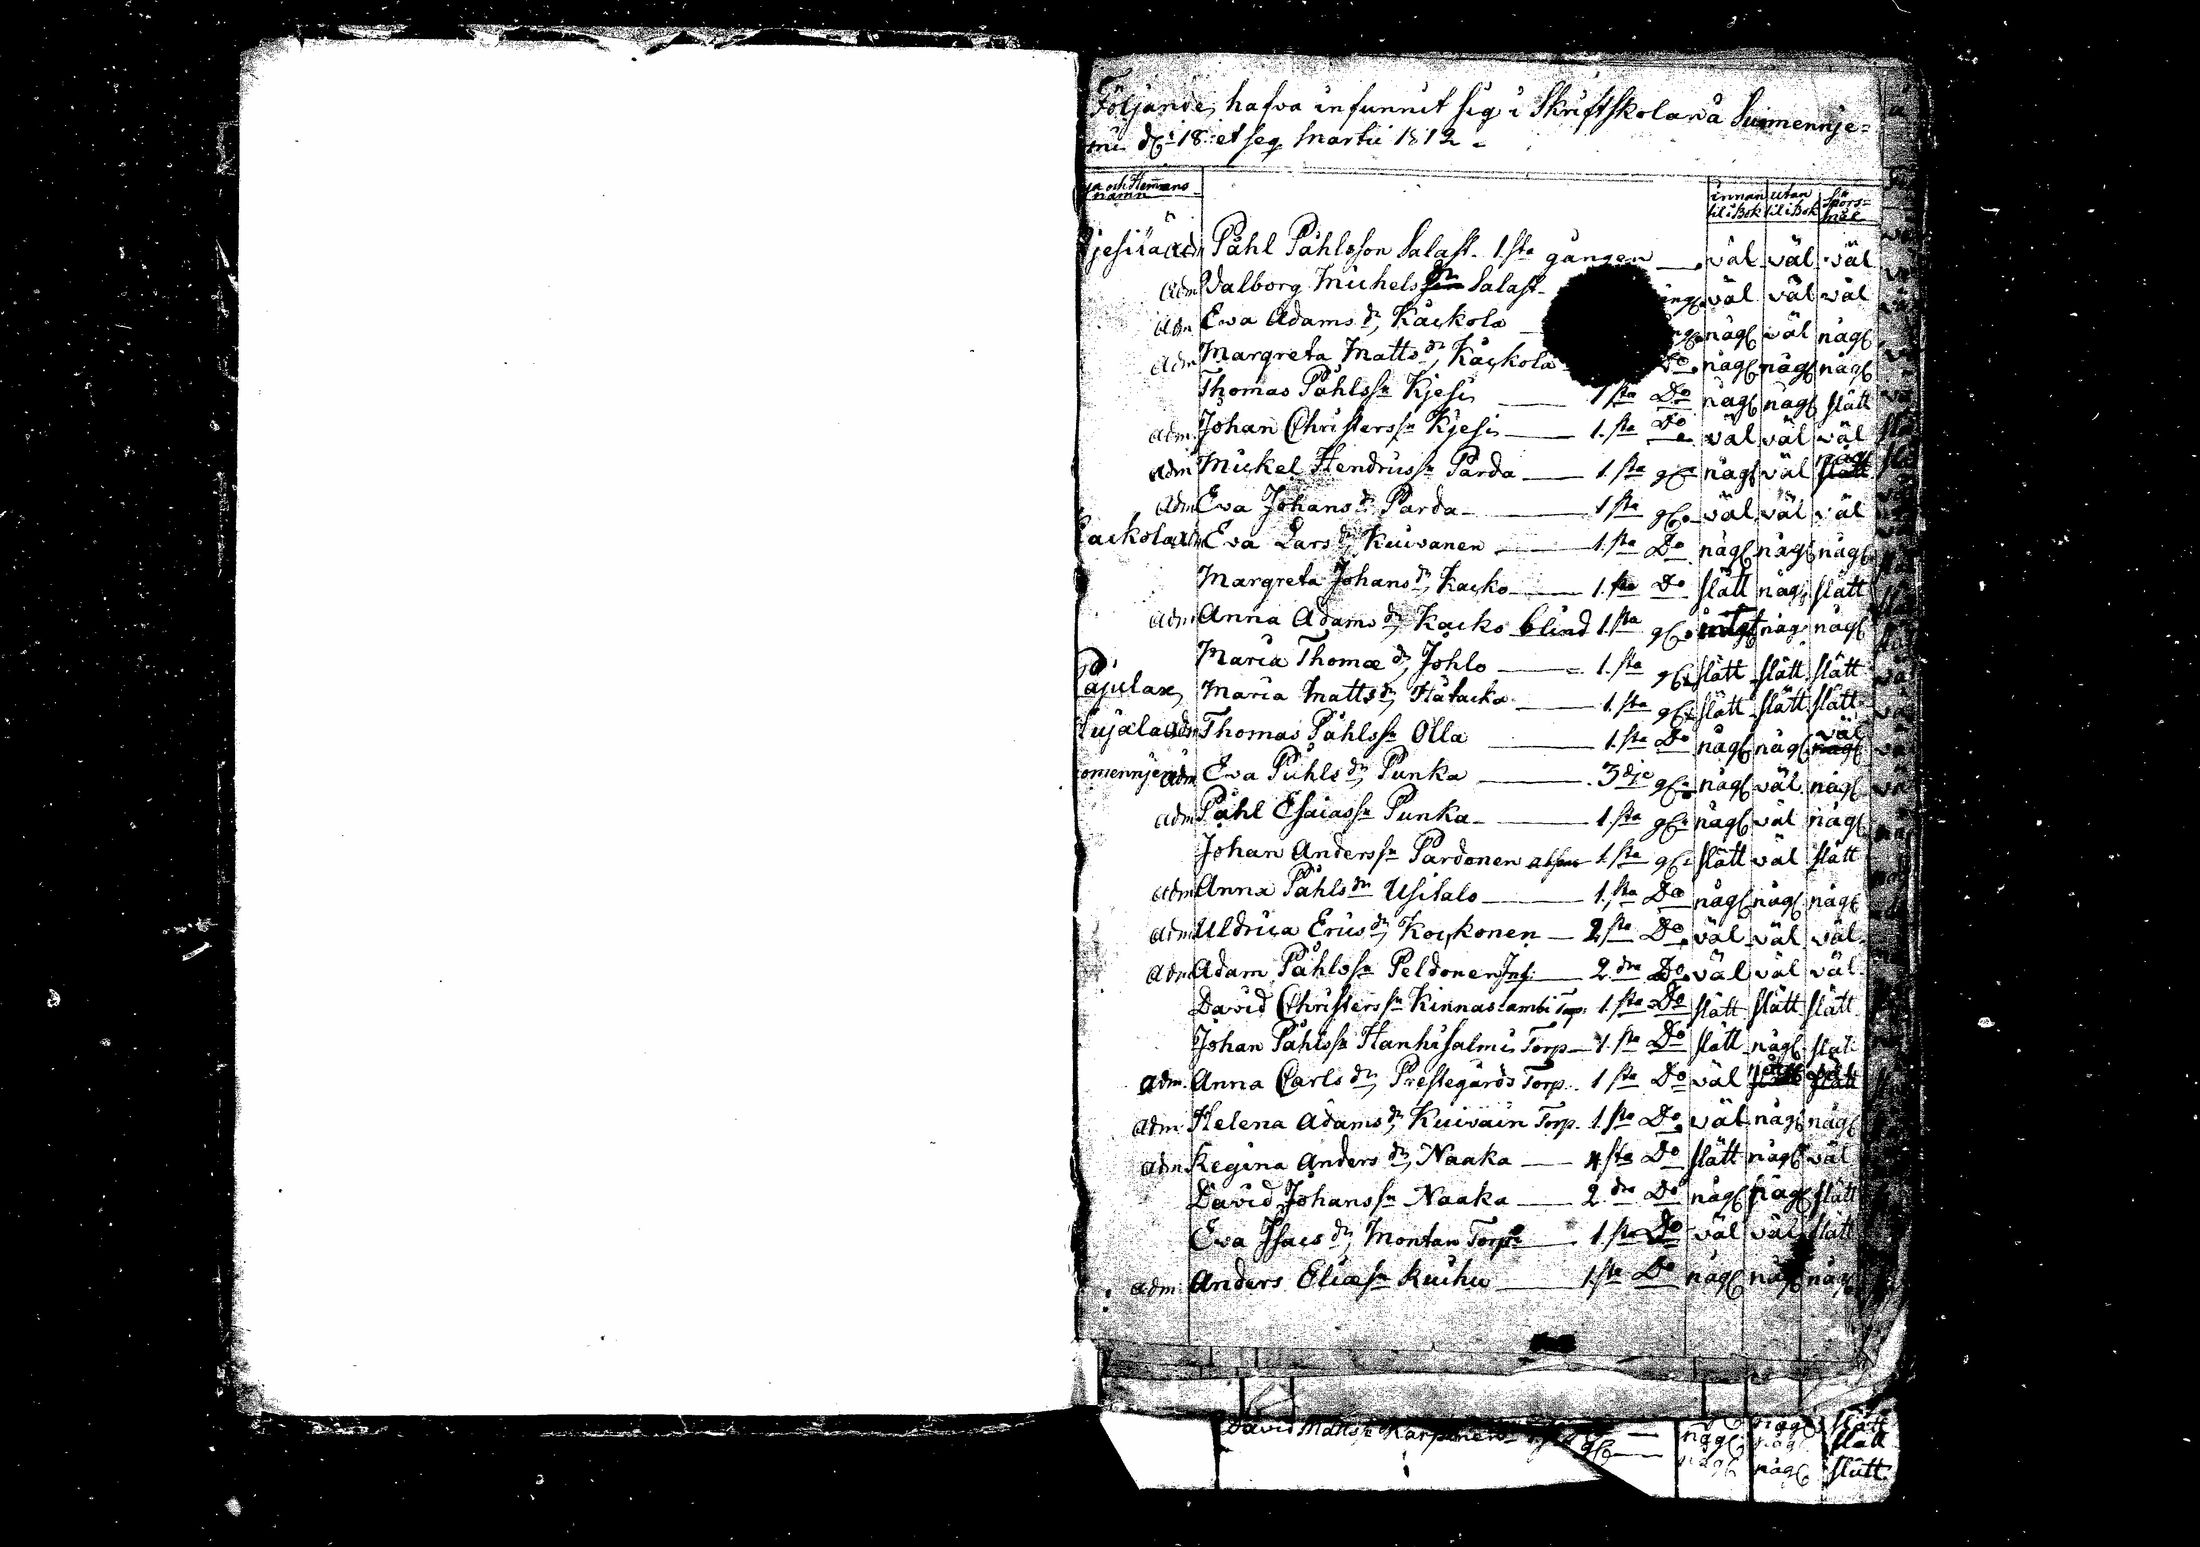 Följande hafva infunnit sig i Skriftskolan å Suimennje=
mi d. 18 et seq Martii 1812
och Hemmans namn innan til i Bok utan til i Bok Spörs=mål
Kjesilä adm Påhl Påhlsson Salast. 1sta gången väl väl väl
adm Valborg Michels dr Salast väl väl väl
adm Eva Adams dr Kackola någ väl någ
adm Margreta Matts dr Kackola Do någ någ någ
Thomas Påhlssn Kjesi 1sta Do någ någ slätt
adm Johan Christerssn Kjesi 1.sta Do väl väl väl
adm Mickel Hendricssn Parda 1.sta någ väl någ slätt
adm Eva Johans dr Parda 1sta väl väl väl
Kackola adm Eva Lars dr Kuivanen 1.sta Do någ någ någ
Margreta Johans dr Kacko 1.sta Do slätt någ slätt
adm Anna Adams dr Kacko blind 1.sta intet någ någ
Maria Thomæ dr Johlo 1.sta slätt slätt slätt
Pajulax Maria Matts dr Hätacka 1.sta slätt slätt slätt
adm Thomas Påhlssn Olla 1.sta Do någ någ väl någ
adm Eva Påhls dr Punka 3dje någ väl någ
adm Påhl Esaiassn Punka 1.sta någ väl någ
Johan Anderssn Pardonen 1.sta slätt väl slätt
adm Anna Påhls dr Usitalo 1.sta Do någ någ någ
adm Uldrica Erics dr Kockonen 2 Do väl väl väl
adm Adam Påhlssn Peldonen Inh. 2.dra Do väl väl väl
David Christerssn Kinnaslambi Torp. 1.sta Do slätt slätt slätt
Johan Påhlssn Hanhisalmi Torp 1.sta Do slätt någ slät
adm. Anna Carls dr Prestegårds Torp. 1sta Do väl slätt
adm. Helena Adams dr Kuivain Torp. 1.sta Do väl någ någ
adm Regina Anders dr Naaka 4 Do slätt någ väl
David Johanssn Naaka 2 dra Do någ någ slätt
Eva Isacs dr Montan Torp 1.sta Do väl väl slätt
adm. Anders Eliæsn Kuihu 1.sta Do någ någ någ
någ slätt
David Mattssn Karpinen någ någ slätt
någ någ slätt